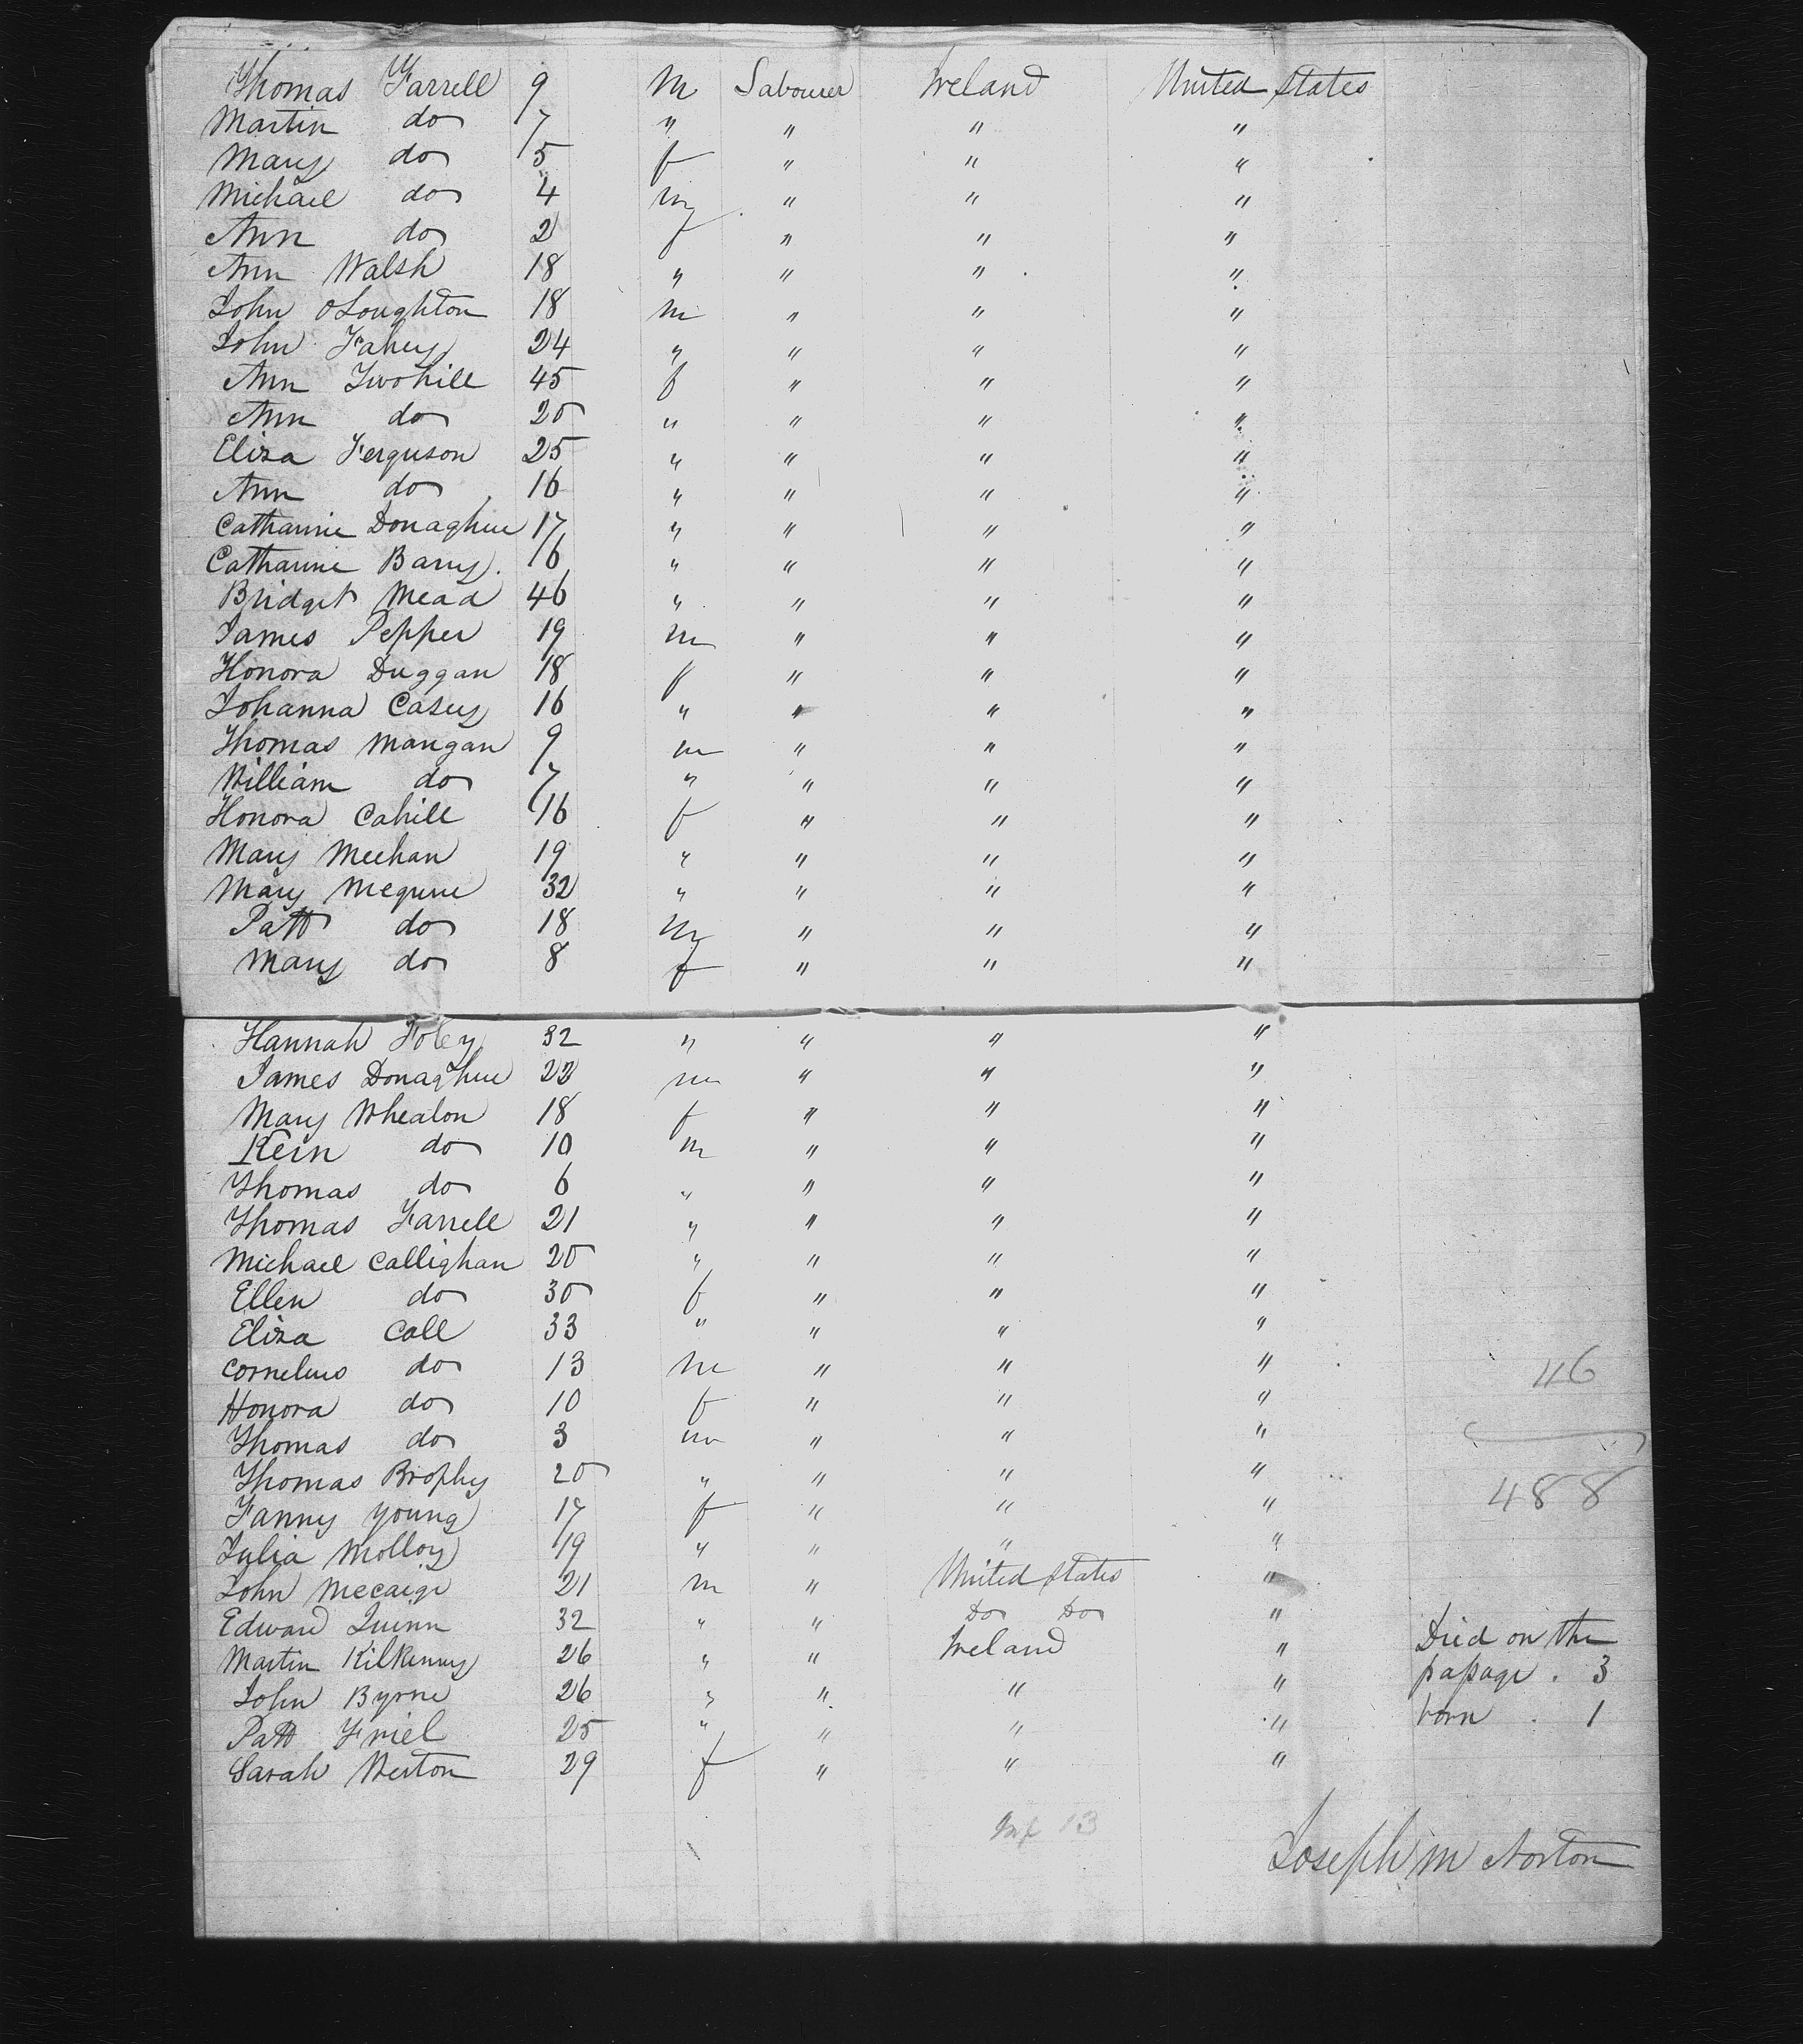 Thomas Farrell 9 m Labourer Ireland United States
Martin do 7 " " " "
Mary do 5 f " " "
Michael do 4 m " " "
Ann do 2 f " " "
Ann Walsh 18 " " " "
John OLoughton 18 m " " "
John Fahey 24 " " " "
Ann Twohill 45 f " " "
Ann do 20 " " " "
Eliza Ferguson 25 " " " "
Ann do 16 " " " "
Catharine Donaghue 17 " " " "
Catharine Barry. 16 " " " "
Bridget Mead 46 " " " "
James Pepper 19 m " " "
Honora Duggan 18 f " " "
Johanna Casey 16 " " " "
Thomas Mangan 9 m " " "
William do 7 " " " "
Honora Cahill 16 f " " "
Mary Meehan 19 " " " "
Mary 32 " " " "
Patt do 18 m " " "
Mary do 8 f " " "
Hannah Foley 32 " " " "
James Donaghue 22 m " " "
Mary Whealon 18 f " " "
Kein do 10 m " " "
Thomas do 6 " " " "
Thomas Farrell 21 " " " "
Michael Callighan 20 " " " "
Ellen do 30 f " " "
Eliza Call 33 " " " "
Cornelius do 13 m " " "
46
Honora do 10 f " " "
Thomas do 3 m " " "
Thomas Brophy 20 " " " "
488
Fanny Young 17 f " " "
Julia Molloy 19 " " " "
John Mecaige 21 m " United States "
Edward Quinn 32 " " Do Do "
Martin Kilkenny 26 " " Ireland " Died on the
John Byrne 26 " " " " passage . 3
Patt Friel 25 " " " " born . 1
Sarah Weston 29 f " " "
Inf 13
Joseph M Norton